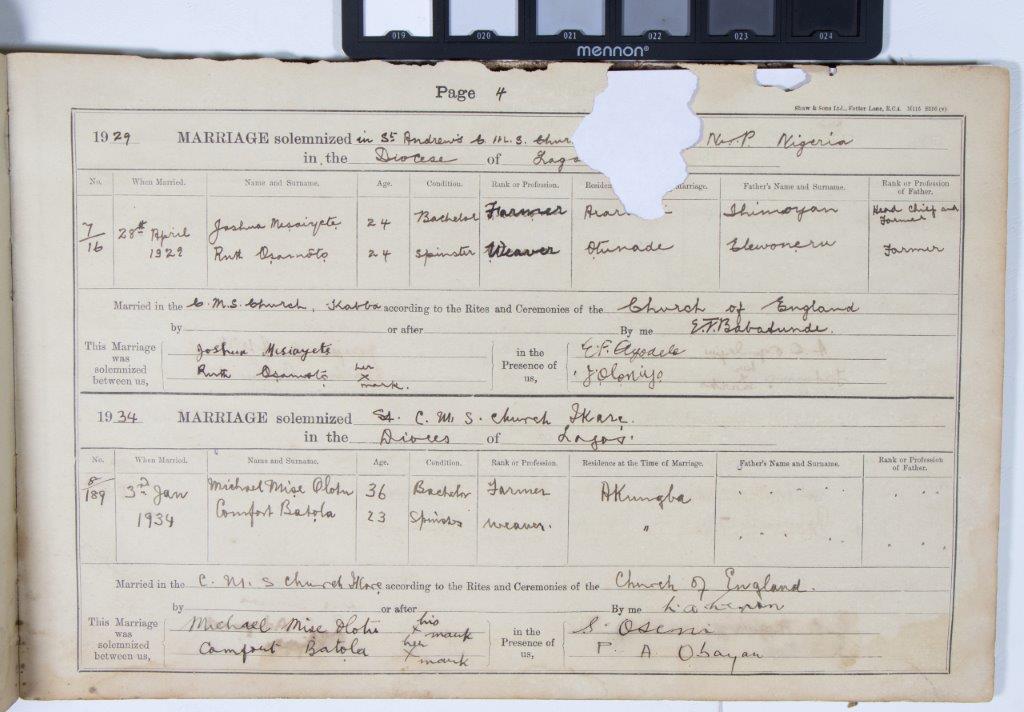 019 020 021 022 023 024
mennon®
Page 4
Shaw & Sons Ltd., Fetter Lane, E.C.4.
1929 MARRIAGE solemnized in St Andrew's C.M.S. Chur N.P. Nigeria
in the Diocese of Lago
No. When Married. Name and Surname. Age. Condition. Rank or Profession. Residen arriage. Father's Name and Surname. Rank or Profession of Father.
7/16 28th April 1929 Joshua Mesaiyete 24 Bachelor Farmer Ihimoyan Head Chief and Farmer
Ruth Osamoto 24 Spinster Weaver Otunade Elewoneru Farmer
Married in the C.M.S. Church, Kabba according to the Rites and Ceremonies of the Church of England
by or after By me E.F. Babatunde.
This Marriage was solemnized between us, Joshua Mesiayete in the Presence of us, E.F. Ayodele
Ruth Osamoto her X mark. J. Oloniyo
1934 MARRIAGE solemnized St. C.M.S. Church Ikare.
in the Dioces of Lagos.
No. When Married. Name and Surname. Age. Condition. Rank or Profession. Residence at the Time of Marriage. Father's Name and Surname. Rank or Profession of Father.
8/189 3rd Jan 1934 Michael Mise Olotu 36 Bachelor Farmer Akungba
Comfort Batola 23 Spinster Weaver. "
Married in the C.M.S Church Ikare according to the Rites and Ceremonies of the Church of England.
by or after By me
This Marriage was solemnized between us, Michael Mise Olotu his X mark in the Presence of us, S. Oseni
Comfort Batola her X mark P. A Obayan